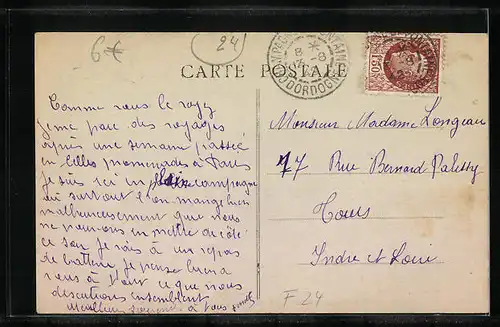 6€
24
CARTE POSTALE
DORDOGNE
1F50
Comme vous le voyez
je me paie des voyages
après une semaine passée
en belles promenades à Paris
je suis ici en pleine campagne
où surtout l'on mange bien
malheureusement que nous
ne pouvons en mettre de côté
ce soir je vais à un repas
de batteuse je pense bien à
vous à tout ce que nous
discutions ensemble
Meilleurs souvenirs à tous
Monsieur Madame Longeau
77 Rue Bernard Palissy
Tours
Indre et Loire
F 24